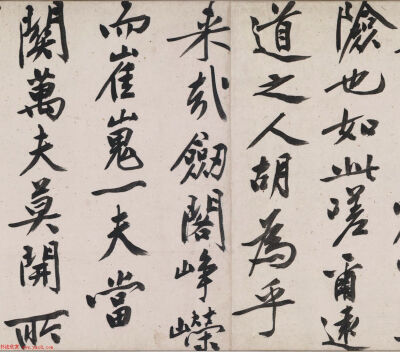 險也如此嗟爾遠
道之人胡為乎
来哉劔閣崢嶸
而崔嵬一夫當
關萬夫莫開所